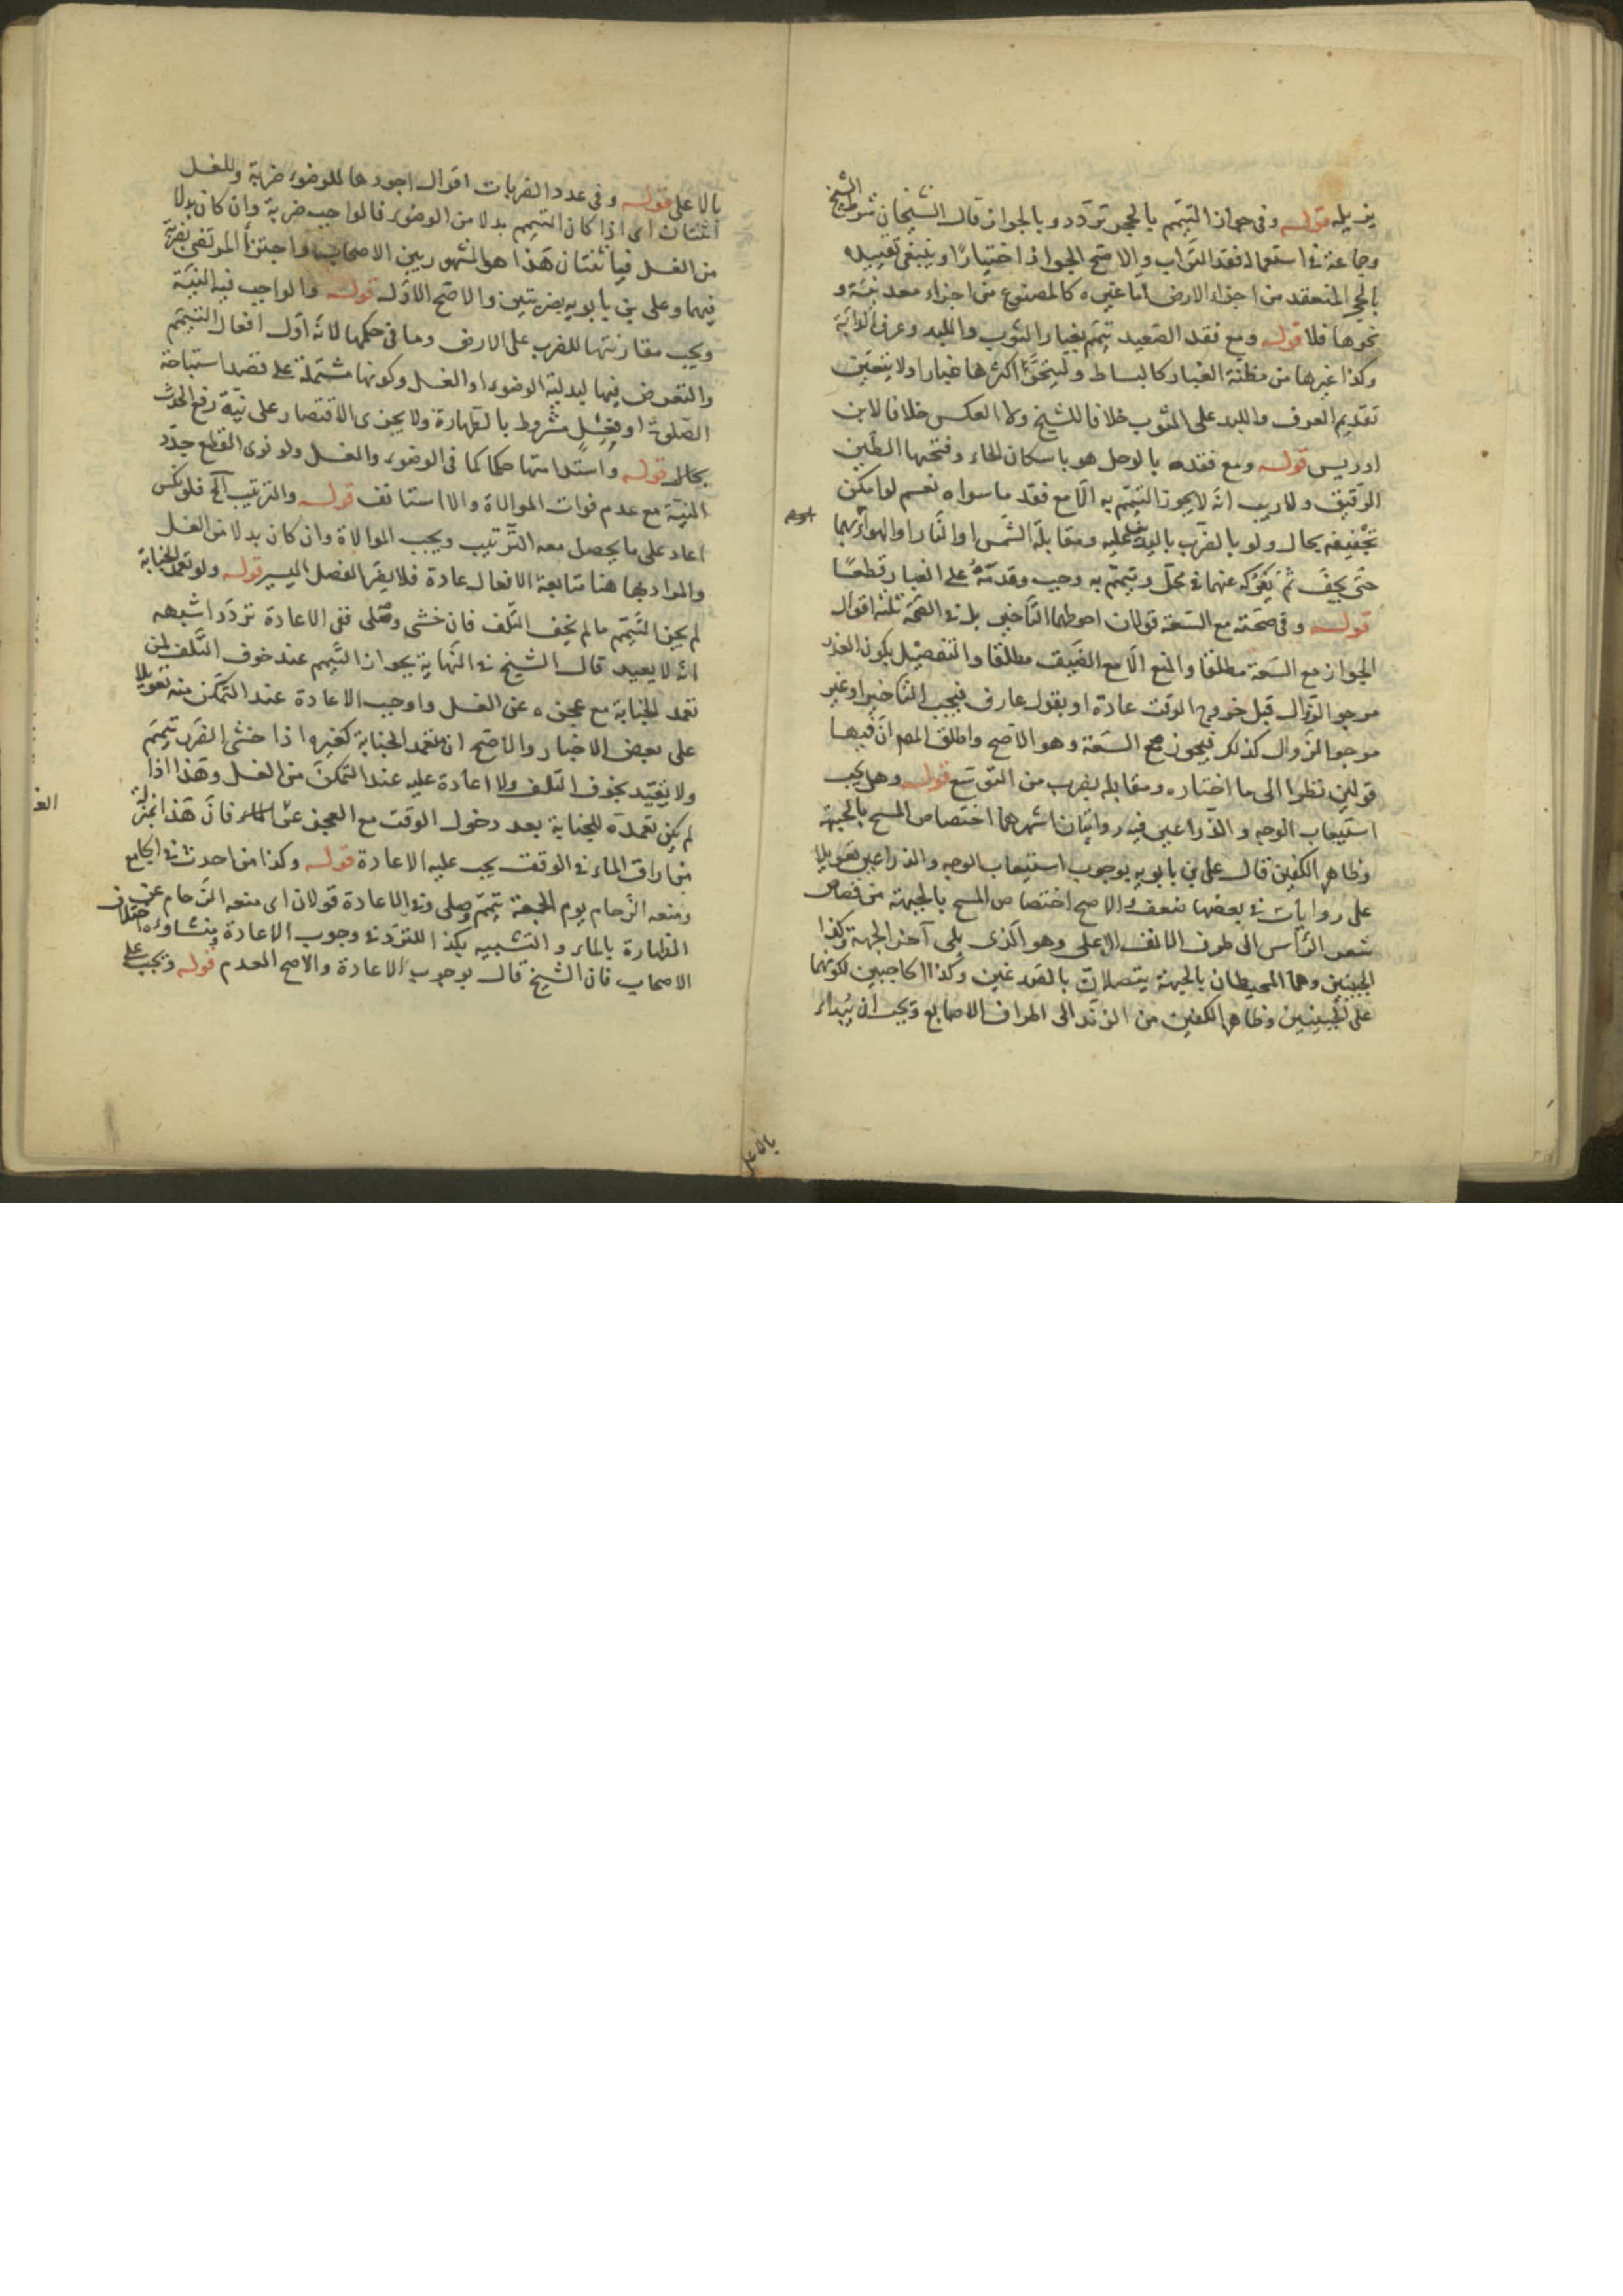 يزيله قوله وفى جواز التيمم بالحجر تردد وبالجواز قال الشيخان شرط الشيخ
وجماعة فى استعماله فقد التراب والاصح الجواز اختيارا وينبغى تقييده
بالحجر المنعقد من اجزاء الارض اما غيره كالمصنوع من اجزاء معدنية و
نحوها فلا قوله ومع فقد الصعيد تيمم بغبار الثوب واللبد وعرف الدابة
وكذا غيرها من مظنة الغبار كالبساط وليتحر اكثرها غبارا ولا يتعين
تقديم العرف واللبد على الثوب خلافا للشيخ ولا العكس خلافا لابن
ادريس قوله ومع فقده بالوحل هو باسكان الحاء وفتحها الطين
الرقيق ولا ريب انه لا يجوز التيمم به الا مع فقد ما سواه نعم لو امكن
تجفيفه بحال ولو بالضرب باليد عليه ومقابلة الشمس او النار او الهواء بهما
حتى يجف ثم يفركه عنهما فى محل ويتيمم به وجب وقدمه على الغبار قطعا
قوله وفى صحته مع السعة قولان احوطهما التاخير بل فى الصحة ثلثة اقوال
الجواز مع السعة مطلقا والمنع الا مع الضيق مطلقا والتفصيل بكون العذر
مرجو الزوال قبل خروج الوقت عادة او بقول عارف فيجب التاخير او غير
مرجو الزوال كذلك فيجوز مع السعة وهو الاصح واطلق المص ان فيها
قولين نظرا الى ما اختاره ومقابله بضرب من التوسع قوله وهل يجب
استيعاب الوجه والذراعين فيه روايتان اشهرهما اختصاص المسح بالجبهة
وظاهر الكفين قال على بن بابويه بوجوب استيعاب الوجه والذراعين تعويلا
على روايات فى بعضها ضعف والاصح اختصاص المسح بالجبهة من قصاص
شعر الرأس الى طرف الانف الاعلى وهو الذى يلى آخر الجبهة وكذا
الجبينين وهما المحيطان بالجبهة يتصلان بالصدغين وكذا الحاجبين لكونهما
على الجبينين وظاهر الكفين من الزند الى اطراف الاصابع ويجب ان يبداء
بالاعلى
بالاعلى قوله وفى عدد الضربات اقوال اجودها للوضوء ضربة وللغسل
اثنتان اى اذا كان التيمم بدلا من الوضوء فالواجب ضربة وان كان بدلا
من الغسل فباثنتان هذا هو المشهور بين الاصحاب واجتزأ المرتضى بضربة
فيهما وعلى بن بابويه بضربتين والاصح الاول قوله والواجب فيه النية
ويجب مقارنتها للضرب على الارض وما فى حكمها لانه اول افعال التيمم
والتعرض فيها لبدلية الوضوء او الغسل وكونها مشتملة على قصد استباحة
الصلوة او فعل مشروط بالطهارة ولا يجزى الاقتصار على نية رفع الحدث
بحال قوله واستدامتها حكما كما فى الوضوء والغسل ولو نوى القطع جدد
النية مع عدم فوات الموالاة والا استانف قوله والترتيب الخ فلو نكس
اعاد على ما يحصل معه الترتيب ويجب الموالاة وان كان بدلا من الغسل
والمراد بها هنا متابعة الافعال عادة فلا يضر الفصل اليسير قوله ولو تعمد الجنابة
لم يجز التيمم ما لم يخف التلف فان خشى وصلى ففى الاعادة تردد اشبهه
انه لا يعيد قال الشيخ فى النهاية بجواز التيمم عند خوف التلف لمن
تعمد الجنابة مع عجزه عن الغسل واوجب الاعادة عند التمكن منه تعويلا
على بعض الاخبار والاصح ان متعمد الجنابة كغيره اذا خشى الضرر تيمم
ولا يتقيد بخوف التلف ولا اعادة عليه عند التمكن من الغسل وهذا اذا
لم يكن تعمده للجنابة بعد دخول الوقت مع العجز عن الماء فان هذا بمنزلة
من اراق الماء فى الوقت يجب عليه الاعادة قوله وكذا من احدث فى الجامع
ومنعه الزحام يوم الجمعة تيمم وصلى وفى الاعادة قولان اى منعه الزحام عن
الطهارة بالماء والتشبيه بكذا للتردد فى وجوب الاعادة ومنشاؤه اختلاف
الاصحاب فان الشيخ قال بوجوب الاعادة والاصح العدم قوله ويجب على